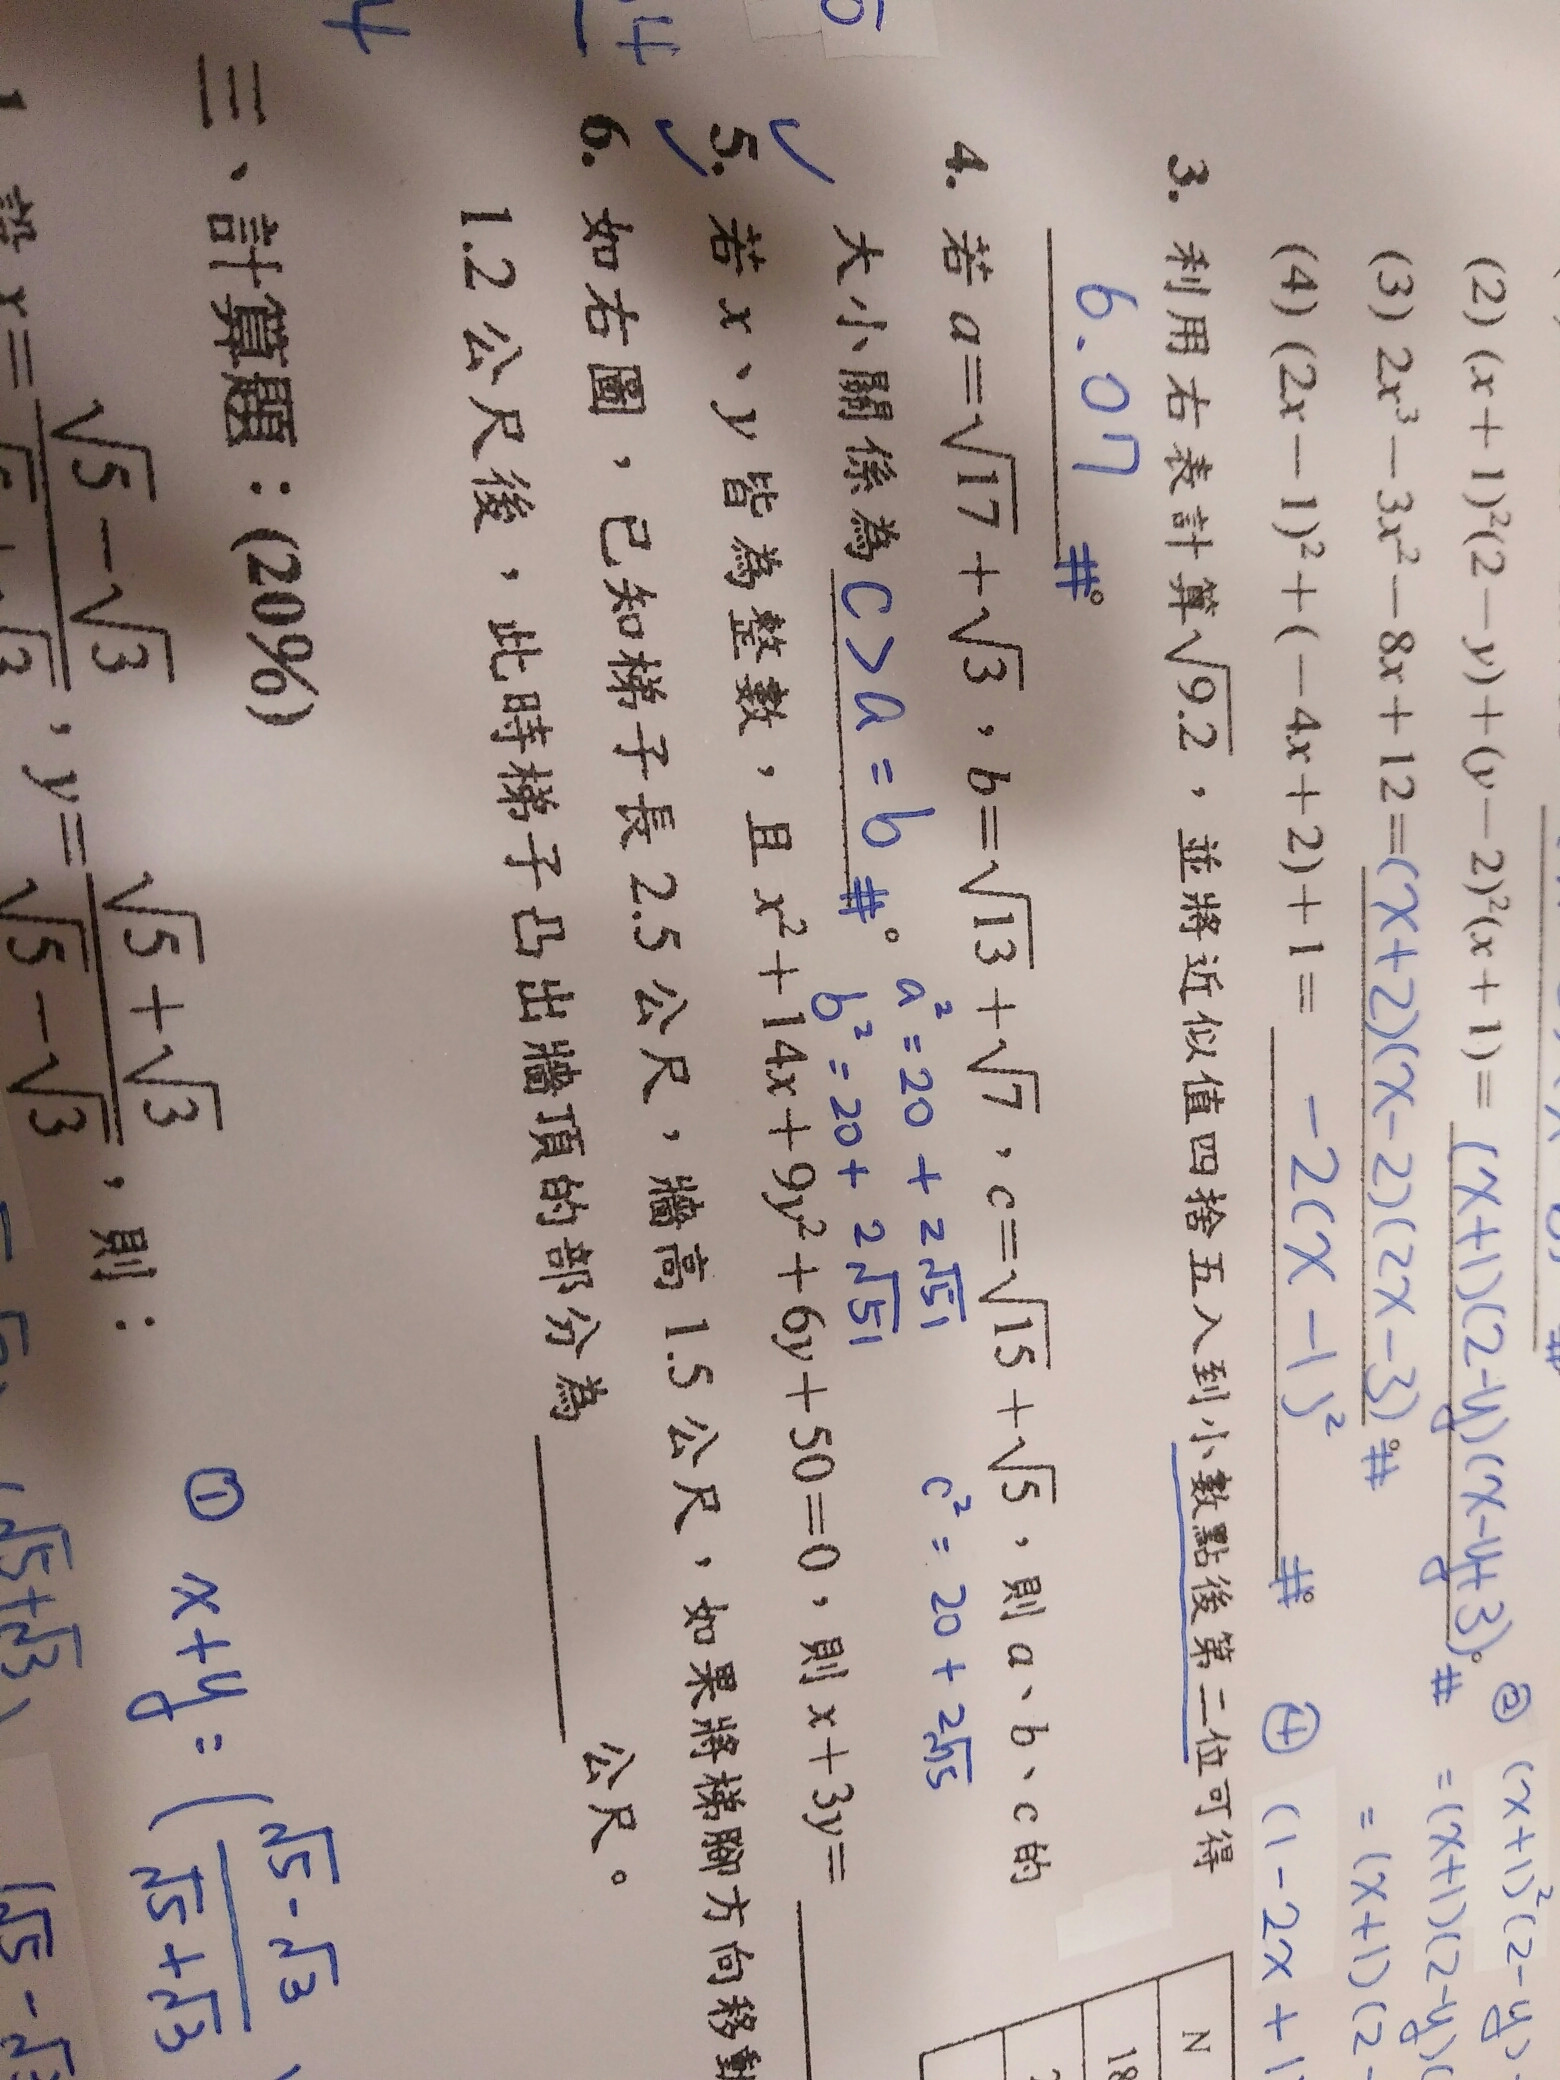 (2) (x+1)²(2-y)+(y-2)²(x+1)= (x+1)(2-y)(x-y+3)。#
② (x+1)²(2-y)
=(x+1)(2-y)(
(3) 2x³-3x²-8x+12=(x+2)(x-2)(2x-3)。#
=(x+1)(2-
(4) (2x-1)²+(-4x+2)+1= -2(x-1)²。#
④ (1-2x+1
3. 利用右表計算√9.2,並將近似值四捨五入到小數點後第二位可得
6.07 #。
N
18
4. 若 a=√17+√3,b=√13+√7,c=√15+√5,則 a、b、c 的
大小關係為 c>a=b #。
a²=20+2√51
b²=20+2√51
c²=20+2√75
5. 若 x、y 皆為整數,且 x²+14x+9y²+6y+50=0,則 x+3y=
6. 如右圖,已知梯子長 2.5 公尺,牆高 1.5 公尺,如果將梯腳方向移動
1.2 公尺後,此時梯子凸出牆頂的部分為 公尺。
三、計算題:(20%)
① x+y=(√5-√3/√5+√3)
1. 設 x=√5-√3/√5+√3,y=√5+√3/√5-√3,則: